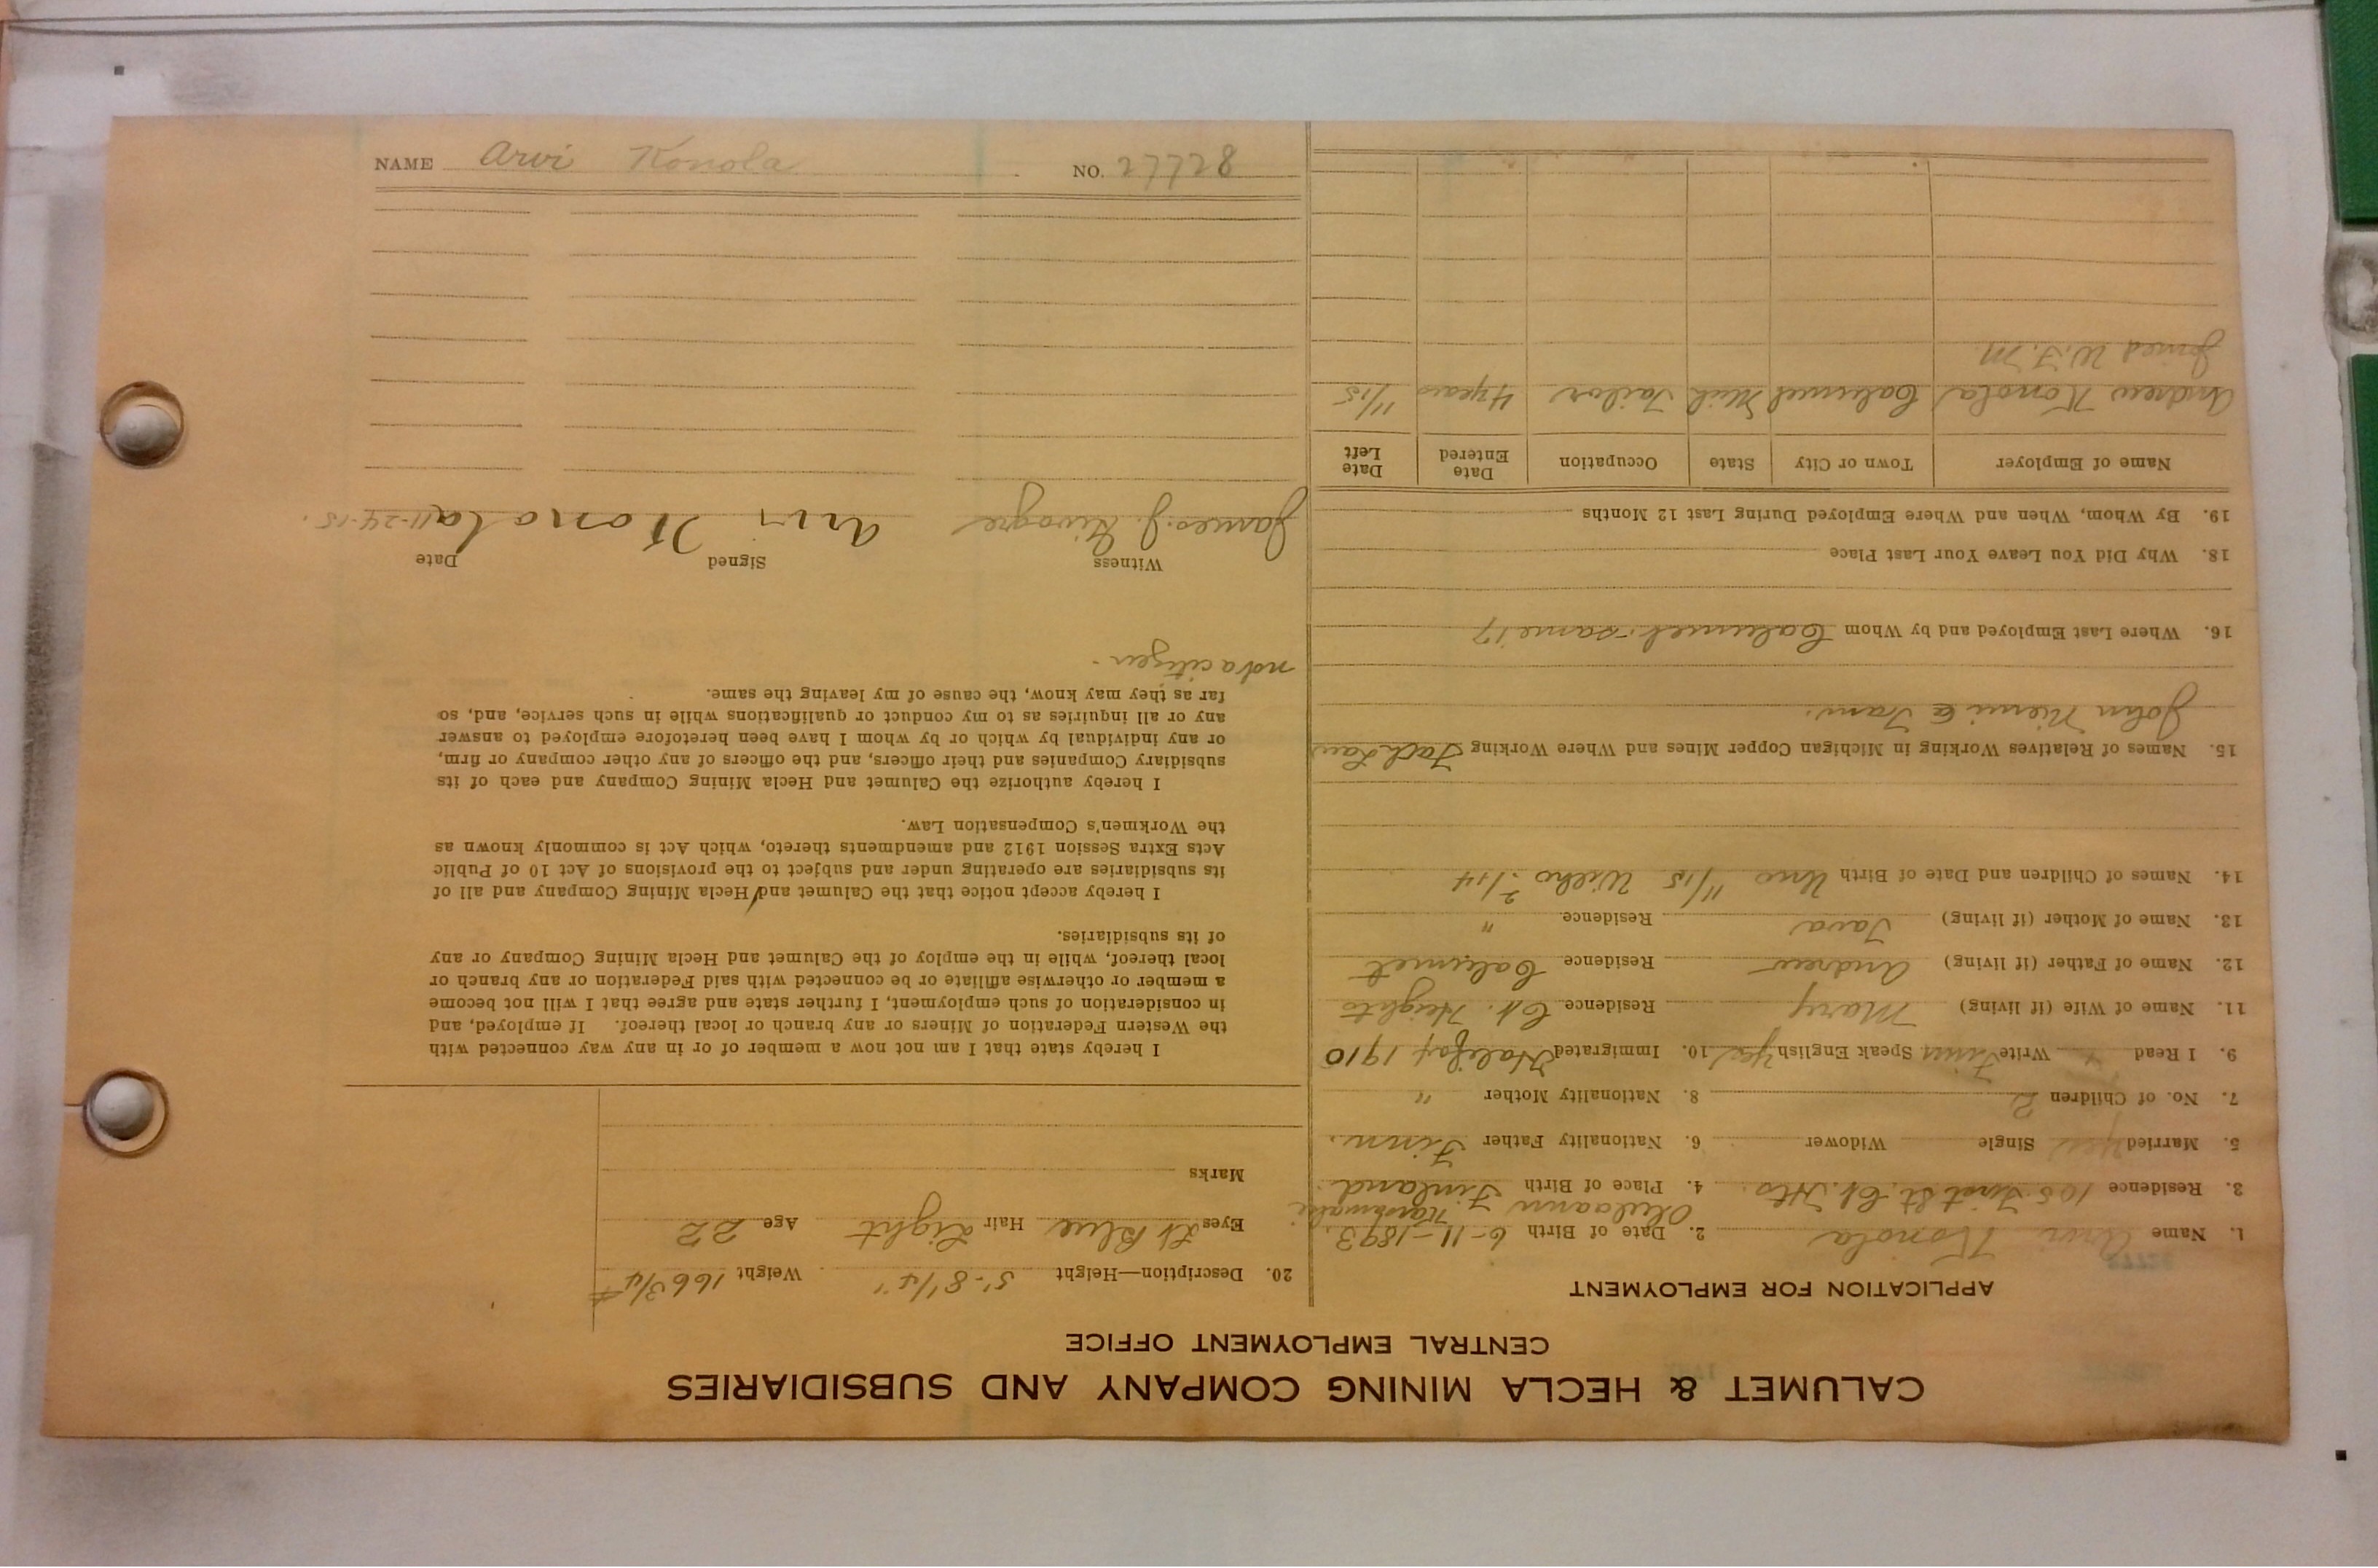 CALUMET & HECLA MINING COMPANY AND SUBSIDIARIES
CENTRAL EMPLOYMENT OFFICE
APPLICATION FOR EMPLOYMENT
1. Name Arvi Konola 2. Date of Birth 6-11-1893.
3. Residence 105 First St. Ck. Hts. 4. Place of Birth Finland
5. Married Yes Single Widower 6. Nationality Father Finn.
7. No. of Children 2 8. Nationality Mother "
9. I Read Write Finn Speak English Yes 10. Immigrated Halifax 1910
11. Name of Wife (if living) Mary Residence Ck. Heights
12. Name of Father (if living) Andrew Residence Calumet
13. Name of Mother (if living) Residence "
14. Names of Children and Date of Birth Uno 11/15 Wilho 2/14
15. Names of Relatives Working in Michigan Copper Mines and Where Working
John Niemi
16. Where Last Employed and by Whom Calumet. same 17
18. Why Did You Leave Your Last Place
19. By Whom, When and Where Employed During Last 12 Months
Name of Employer Town or City State Occupation Date Entered Date Left
Andrew Konola Calumet Mich Tailor 4 years 11/15
Joined W.F.M
20. Description—Height 5'-8 1/4" Weight 166 3/4 #
Eyes Lt Blue Hair Light Age 22
Marks
I hereby state that I am not now a member of or in any way connected with
the Western Federation of Miners or any branch or local thereof. If employed, and
in consideration of such employment, I further state and agree that I will not become
a member or otherwise affiliate or be connected with said Federation or any branch or
local thereof, while in the employ of the Calumet and Hecla Mining Company or any
of its subsidiaries.
I hereby accept notice that the Calumet and Hecla Mining Company and all of
its subsidiaries are operating under and subject to the provisions of Act 10 of Public
Acts Extra Session 1912 and amendments thereto, which Act is commonly known as
the Workmen's Compensation Law.
I hereby authorize the Calumet and Hecla Mining Company and each of its
subsidiary Companies and their officers, and the officers of any other company or firm,
or any individual by which or by whom I have been heretofore employed to answer
any or all inquiries as to my conduct or qualifications while in such service, and, so
far as they may know, the cause of my leaving the same.
not a citizen.
Witness Signed Date
James J. Arvi Konola 11-24-15.
NAME Arvi Konola NO. 27728